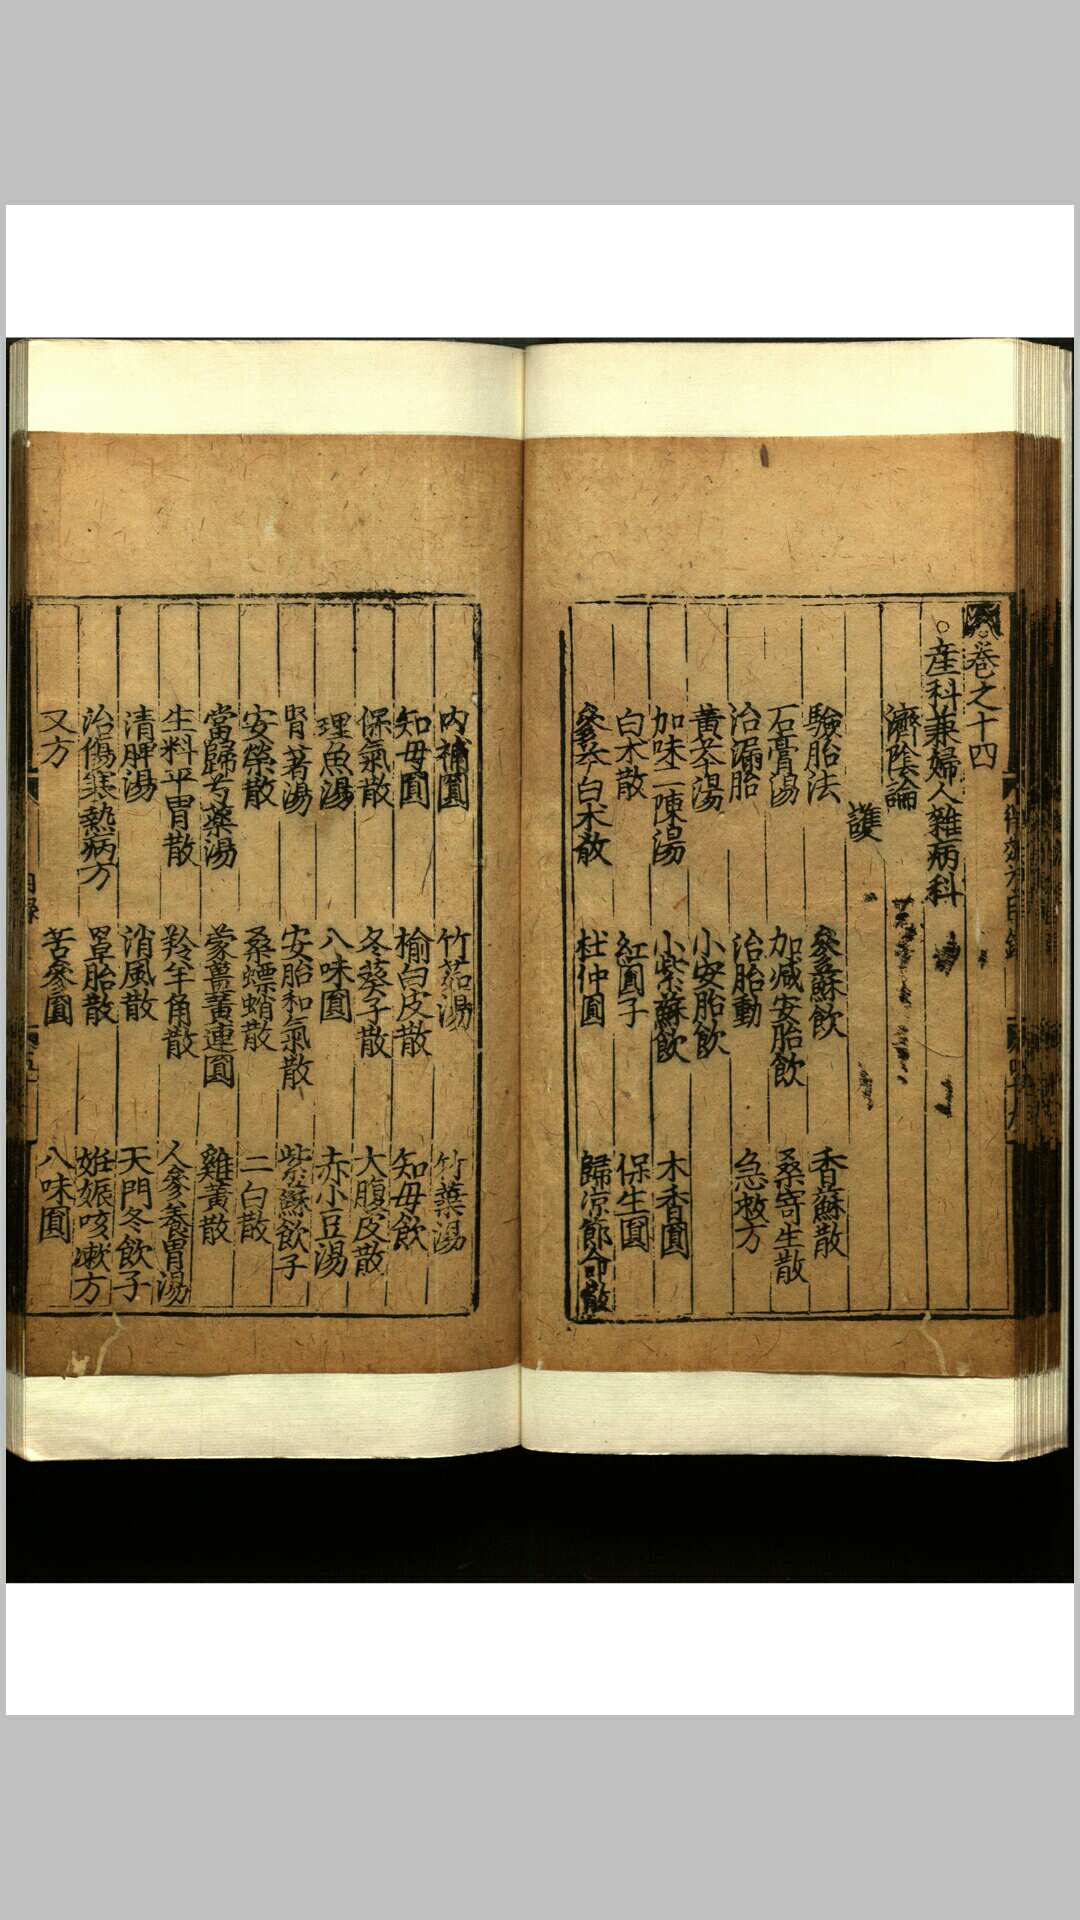 卷之十四
○産科兼婦人雜病科
濟陰論
護
驗胎法 參蘇飲 香蘇散
石膏湯 加减安胎飲 桑寄生散
治漏胎 治胎動 急救方
黃芩湯 小安胎飲
加味二陳湯 小紫蘇飲 木香圓
白术散 紅圓子 保生圓
白术散 杜仲圓 歸凉節命散
内補圓 竹茹湯 竹葉湯
知母圓 榆白皮散 知母飲
保氣散 冬葵子散 大腹皮散
理魚湯 八味圓 赤小豆湯
腎著湯 安胎和氣散 紫蘇飲子
安榮散 桑螵蛸散 二白散
當歸芍藥湯 蒙薑黃連圓 雞黃散
生料平胃散 羚羊角散 人參養胃湯
清脾湯 消風散 天門冬飲子
治傷寒熱病方 罩胎散 姙娠咳嗽方
又方 苦參圓 八味圓